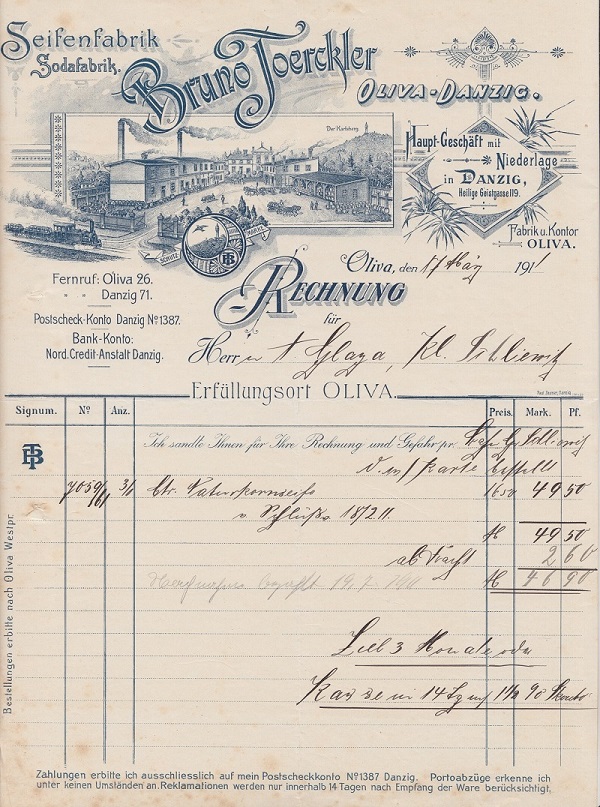 Seifenfabrik
Sodafabrik.
Bruno Toerckler
OLIVA-DANZIG.
Der Karlsberg
Haupt-Geschäft mit
Niederlage
in DANZIG,
Heilige Geistgasse 119.
Fabrik u. Kontor
OLIVA.
SCHUTZ MARKE
BT
Fernruf: Oliva 26.
" " Danzig 71.
Postscheck-Konto Danzig Nº 1387.
Bank-Konto:
Nord. Credit-Anstalt Danzig.
Oliva, den 17 März 1911
RECHNUNG
für
Herrn A. Glaza, Kl. Schliewitz
Erfüllungsort OLIVA.
Signum. Nº Anz. Preis. Mark. Pf.
BT
Ich sandte Ihnen für Ihre Rechnung und Gefahr pr.
Karte bestellt
7059/61 3/1 Ctr. 1650 49 50
18/2 11.
M 49 50
ab Fracht 2 60
M 46 90
Ziel 3 Monate oder
Kasse in 14 Tg
Bestellungen erbitte nach Oliva Westpr.
Zahlungen erbitte ich ausschliesslich auf mein Postscheckkonto Nº 1387 Danzig. Portoabzüge erkenne ich
unter keinen Umständen an. Reklamationen werden nur innerhalb 14 Tagen nach Empfang der Ware berücksichtigt.